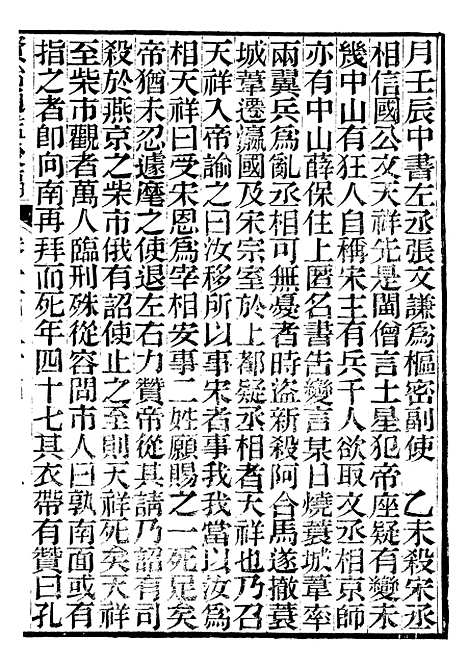 月壬辰中書左丞張文謙爲樞密副使　乙未殺宋丞
相信國公文天祥先是閩僧言土星犯帝座疑有變未
幾中山有狂人自稱宋主有兵千人欲取文丞相京師
亦有中山薛保住上匿名書告變言某日燒蓑城葦率
兩翼兵爲亂丞相可無憂者時盜新殺阿合馬遂撤蓑
城葦遷瀛國及宋宗室於上都疑丞相者天祥也乃召
天祥入帝諭之曰汝移所以事宋者事我我當以汝爲
相天祥曰受宋恩爲宰相安事二姓願賜之一死足矣
帝猶未忍遽麾之使退左右力贊帝從其請乃詔有司
殺於燕京之柴市俄有詔使止之至則天祥死矣天祥
至柴市觀者萬人臨刑殊從容問市人曰孰南面或有
指之者卽向南再拜而死年四十七其衣帶有贊曰孔